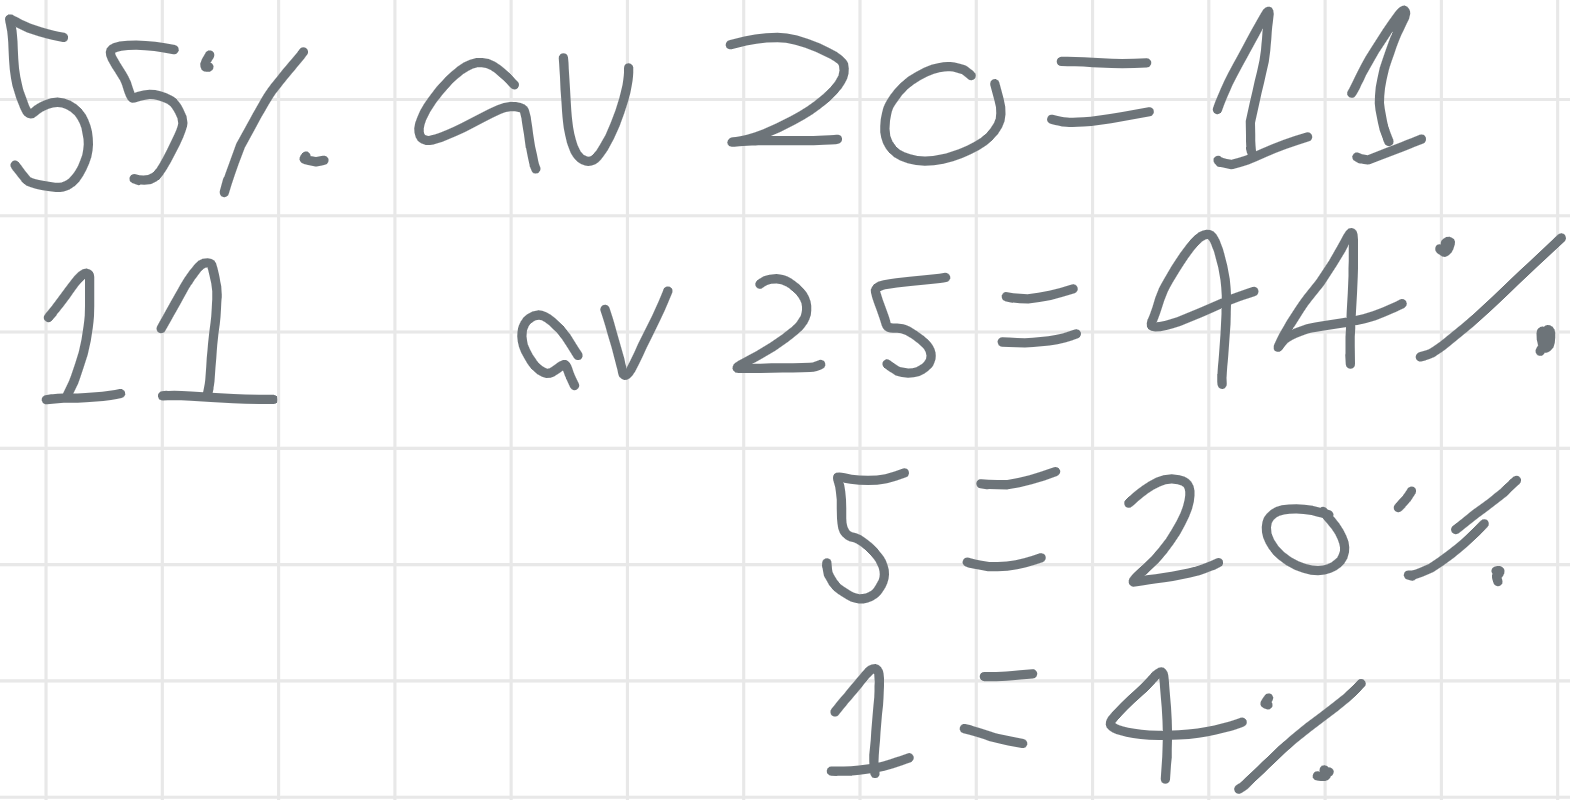 55% av 20=11
11 av 25=44%
5=20%
1=4%